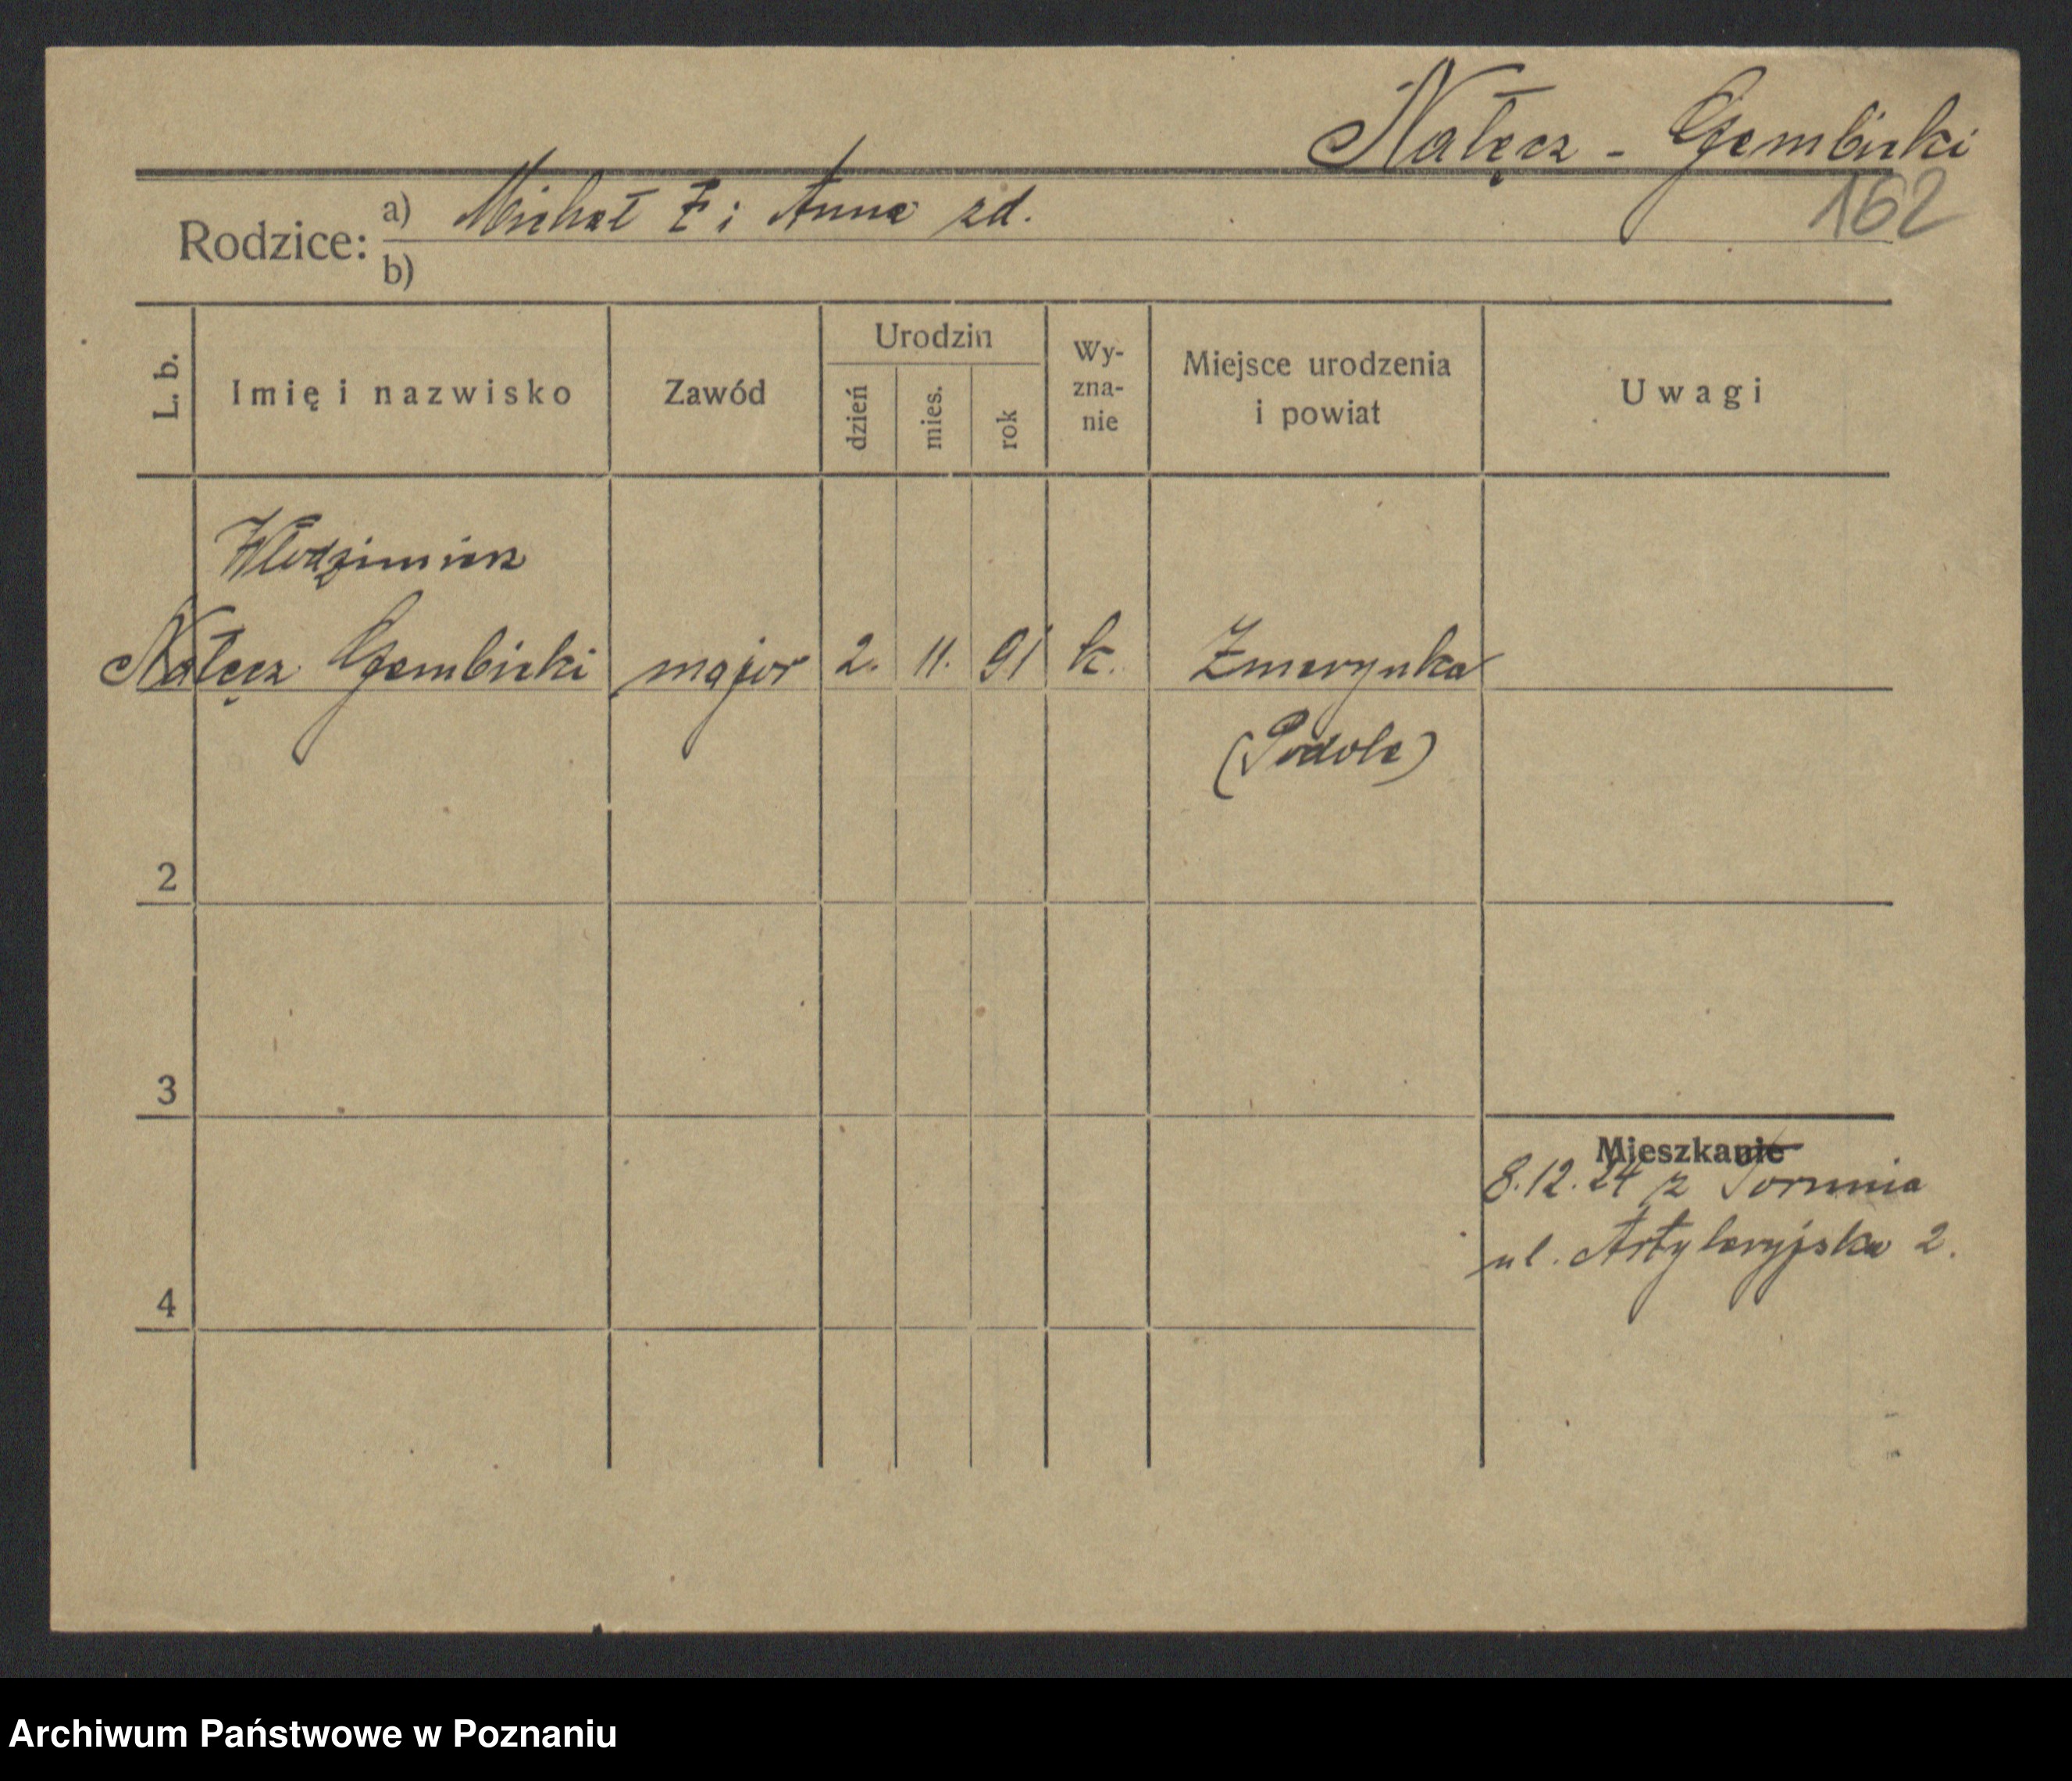 Nałęcz - Gembicki
162
Rodzice: a) Michał i Anna zd.
b)
L. b. Imię i nazwisko Zawód Urodzin dzień mies. rok Wy-zna-nie Miejsce urodzenia i powiat Uwagi
Włodzimierz
Nałęcz Gembicki major 2. 11. 91 k. Zmerynka
(Podole)
2
3
Mieszkanie
8.12.24 z Torunia
ul. Artyleryjska 2.
4
Archiwum Państwowe w Poznaniu